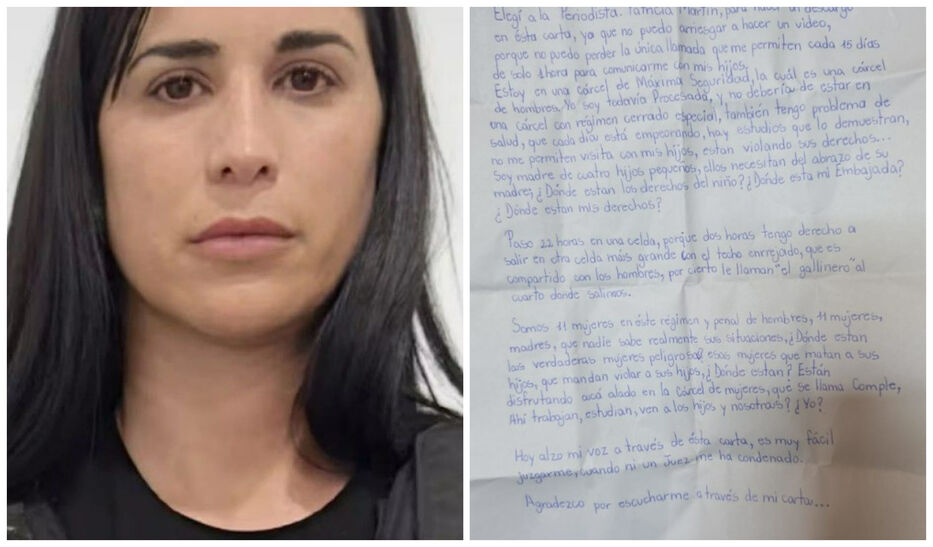 Elegí a la Periodista. Patricia Martín, para hacer un descargo
en ésta carta, ya que no puedo arriesgar a hacer un video,
porque no puedo perder la única llamada que me permiten cada 15 días
de solo 1 hora para comunicarme con mis hijos.
Estoy en una cárcel de Máxima Seguridad, la cuál es una cárcel
de hombres. Yo soy todavía Procesada, y no debería de estar en
una cárcel con régimen cerrado especial, también tengo problema de
salud, que cada día está empeorando, hay estudios que lo demuestran,
no me permiten visita con mis hijos, estan violando sus derechos...
Soy madre de cuatro hijos pequeños, ellos necesitan del abrazo de su
madre, ¿Dónde estan los derechos del niño? ¿Dónde esta mi Embajada?
¿Dónde estan mis derechos?
Paso 22 horas en una celda, porque dos horas tengo derecho a
salir en otra celda más grande con el techo enrejado, que es
compartido con los hombres, por cierto le llaman "el gallinero" al
cuarto donde salimos.
Somos 11 mujeres en éste régimen y penal de hombres, 11 mujeres,
madres, que nadie sabe realmente sus situaciones, ¿Dónde estan
las verdaderas mujeres peligrosas? esas mujeres que matan a sus
hijos, que mandan violar a sus hijos, ¿Dónde estan? Están
disfrutando acá alado en la Cárcel de mujeres, que se llama Comple,
Ahí trabajan, estudian, ven a los hijos y nosotras? ¿Yo?
Hoy alzo mi voz a través de ésta carta, es muy fácil
juzgarme, cuando ni un Juez me ha condenado.
Agradezco por escucharme a través de mi carta...